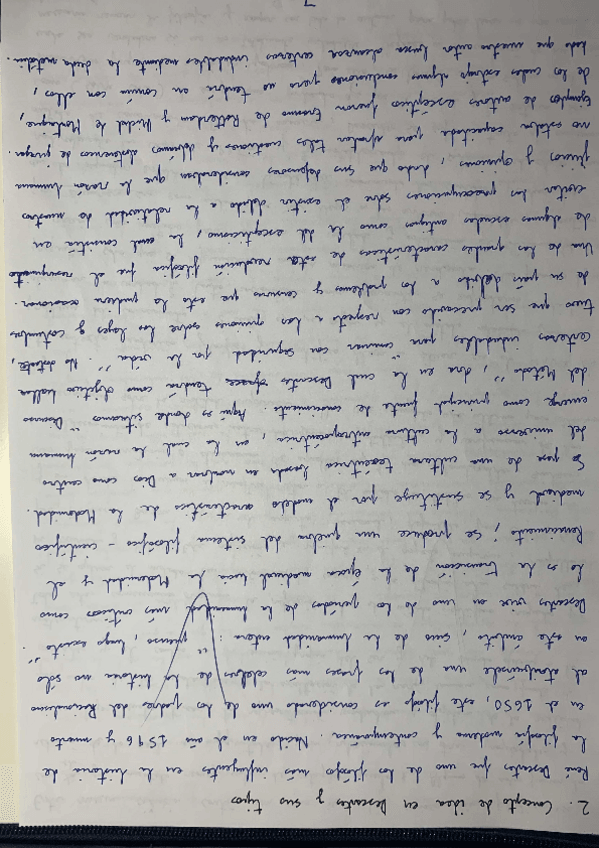 2. Concepto de idea en Descartes y sus tipos
René Descartes fue uno de los filósofos más influyentes en la historia de
la filosofía moderna y contemporánea. Nacido en el año 1596 y muerto
en el 1650, este filósofo es considerado uno de los padres del Racionalismo
al atribuírsele una de las frases más célebres de la historia no sólo
en este ámbito, sino de la humanidad entera: "pienso, luego existo".
Descartes vive en uno de los periodos de la humanidad más críticos como
lo es la transición de la época medieval hacia la Modernidad y el
Renacimiento; se produce una quiebra del sistema filosófico - científico
medieval y se sustituye por el modelo característico de la Modernidad.
Se pasa de una cultura teocéntrica basada en nombrar a Dios como centro
del universo a la cultura antropocéntrica, en la cual la razón humana
emerge como principal fuente de conocimiento. Aquí es donde situamos "Discurso
del Método", obra en la cual Descartes tendrá como objetivo hallar
certezas indudables para "caminar con seguridad por la vida". No obstante,
tuvo que ser precavido con respecto a las opiniones sobre las leyes y costumbres
de su país debido a los problemas y censuras que esto le pudiera ocasionar.
Una de las grandes características de esta revolución filosófica fue el resurgimiento
de algunas escuelas antiguas como la del escepticismo, la cual consistía en
evitar las preocupaciones sobre el existir debido a la relatividad de nuestros
juicios y opiniones, dado que sus defensores consideraban que la razón humana
no estaba capacitada para aportar tales cuestiones y debíamos abstenernos de juzgar.
Ejemplos de autores escépticos fueron Erasmo de Rotterdam y Michel de Montaigne,
de los cuales extrajo algunas conclusiones pero no tendría en común con ellos,
dado que nuestro autor busca alcanzar certezas indudables mediante la duda metódica.